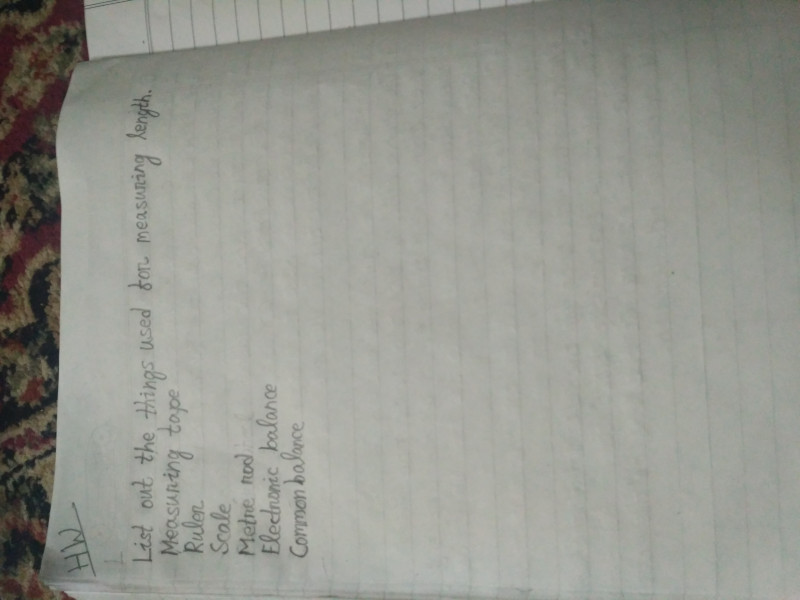 HW
List out the things used for measuring length.
Measuring tape
Ruler
Scale
Metre rod
Electronic balance
Common balance